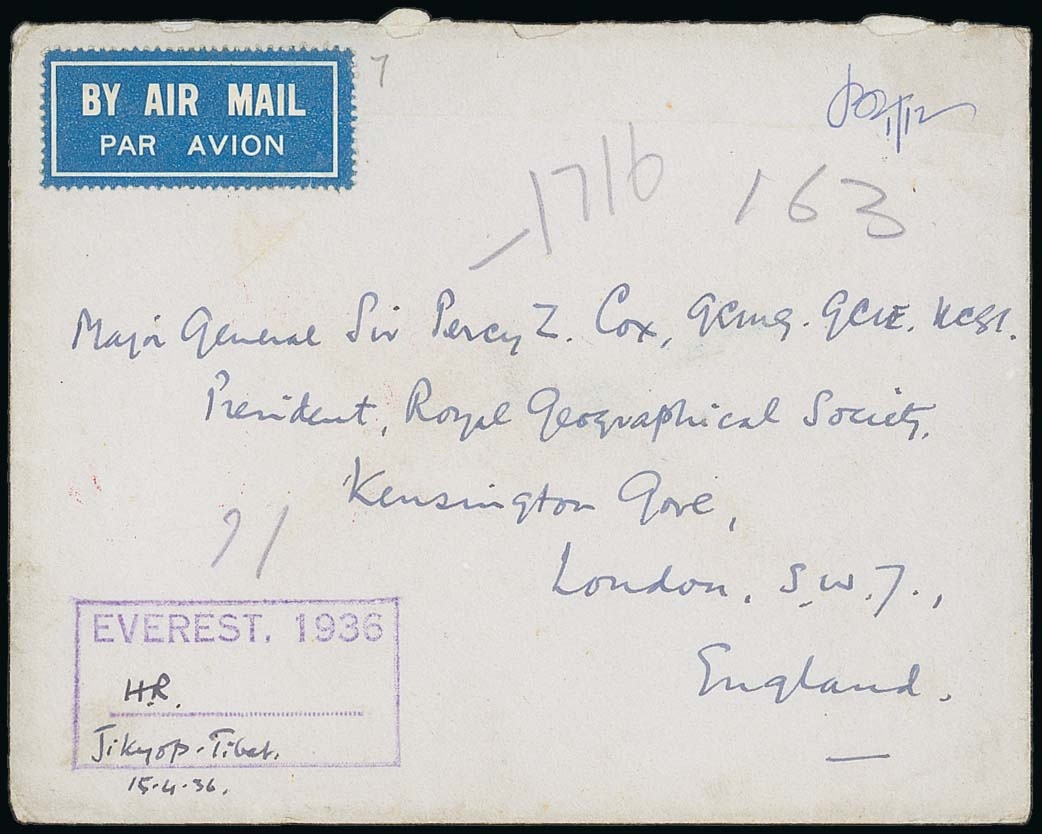 BY AIR MAIL
PAR AVION
7
1716
163
Major General Sir Percy Z. Cox, GCMG. GCIE. KCSI.
President, Royal Geographical Society,
Kensington Gore,
London, S.W.7.,
England.
71
EVEREST. 1936
H.R.
Jikyop-Tibet.
15.4.36.